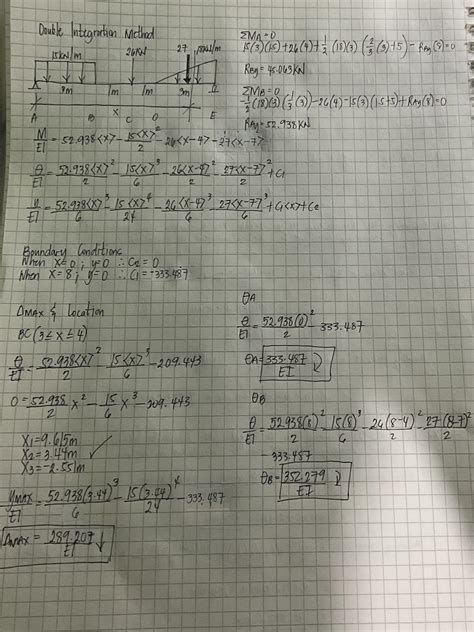 Double Integration Method
15kN/m
26KN
27
18kN/m
3m
1m
1m
3m
A
B
x
C
D
E
ΣMA=0
15(3)(1.5)+26(4)+1/2(18)(3)(2/3(3)+5)-RBy(8)=0
RBy=45.063KN
ΣMB=0
-1/2(18)(3)(1/3(3))-26(4)-15(3)(1.5+5)+RAy(8)=0
RAy=52.938KN
M/EI = 52.938<x> - 15<x>²/2 - 26<x-4> - 27<x-7>
θ/EI = 52.938<x>²/2 - 15<x>³/6 - 26<x-4>²/2 - 27<x-7>²/2 + C1
y/EI = 52.938<x>³/6 - 15<x>⁴/24 - 26<x-4>³/6 - 27<x-7>³/6 + C1<x> + C2
Boundary Conditions
When x=0; y=0 ∴ C2=0
When x=8; y=0 ∴ C1=-333.487
Δmax & Location
BC (3≤x≤4)
θ/EI = 52.938<x>²/2 - 15<x>³/6 - 209.443
0 = 52.938/2 x² - 15/6 x³ - 209.443
X1=9.615m
X2=3.44m ✓
X3=-2.551m
ymax/EI = 52.938(3.44)³/6 - 15(3.44)⁴/24 - 333.487
Δmax = 289.207/EI ↓
θA
θ/EI = 52.938(0)²/2 - 333.487
θA = 333.487/EI
θB
θ/EI = 52.938(8)²/2 - 15(8)³/6 - 26(8-4)²/2 - 27(8-7)²/2
- 333.487
θB = 352.279/EI